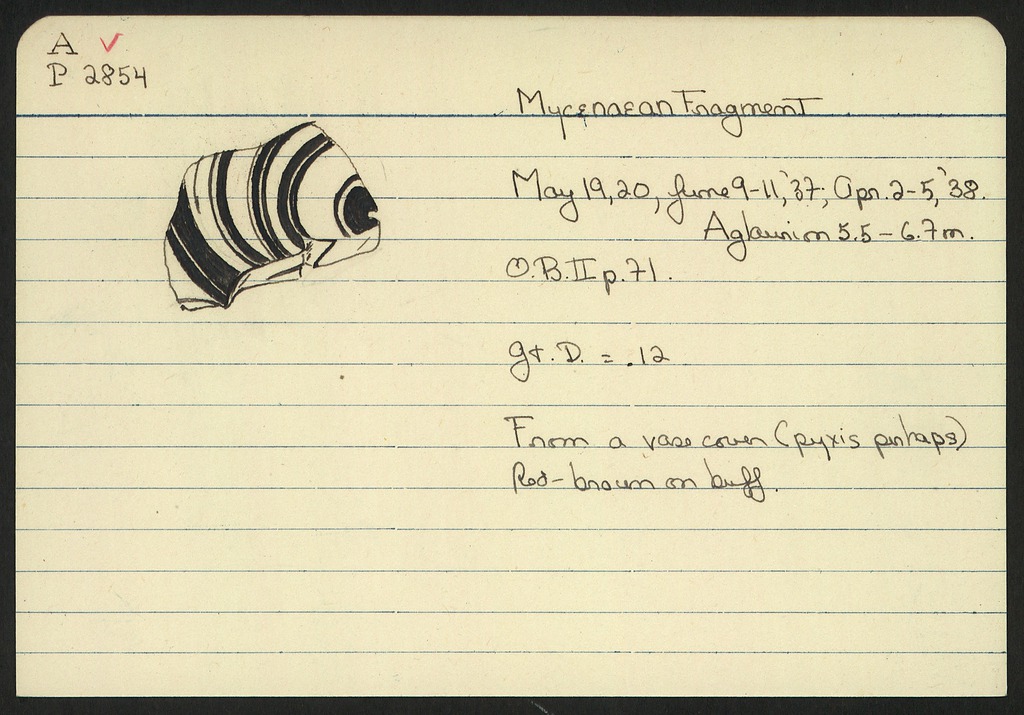 A ✓
P 2854
Mycenaean Fragment
May 19, 20, June 9-11, '37; Apr. 2-5, '38.
Aglaurion 5.5 – 6.7 m.
O.B. II p. 71.
gt. D. = .12
From a vase cover (pyxis perhaps)
Red-brown on buff.